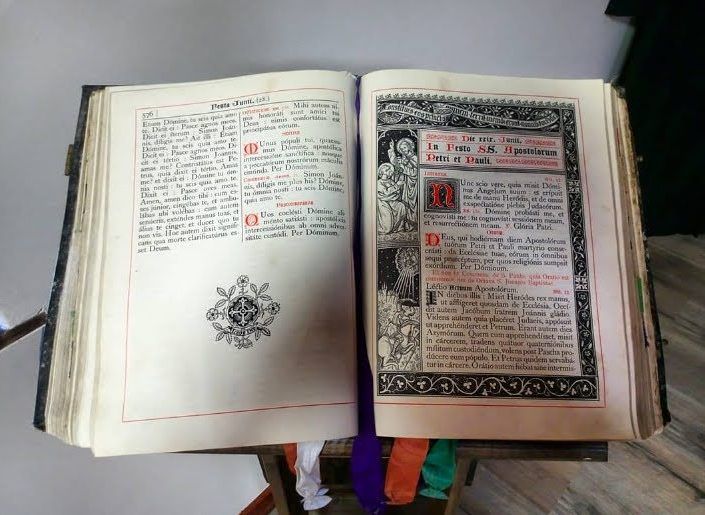 576
Festa Junii. (28.)
Etiam Dómine, tu scis quia amo
te. Dicit ei : Pasce agnos meos.
Dicit ei íterum : Simon Joán-
nis, díligis me? Ait illi : Etiam
Dómine, tu scis quia amo te.
Dicit ei : Pasce agnos meos. Di-
cit ei tértio : Simon Joánnis,
amas me? Contristátus est Pe-
trus, quia dixit ei tértio, Amas
me? et dixit ei : Dómine tu óm-
nia nosti : tu scis quia amo te.
Dixit ei : Pasce oves meas.
Amen, amen dico tibi : cum es-
ses júnior, cingébas te, et ambu-
lábas ubi volébas : cum autem
senúeris, exténdes manus tuas, et
álius te cinget, et ducet quo tu
non vis. Hoc autem dixit signífi-
cans qua morte clarificatúrus es-
set Deum.
Mihi autem ni-
mis honoráti sunt amíci tui
Deus : nimis confortátus est
principátus eórum.
Secreta
Múnus pópuli tui, quǽsu-
mus Dómine, apostólica
intercessióne sanctífica : nosque
a peccatórum nostrórum máculis
emúnda. Per Dóminum.
Simon Joán-
nis, díligis me plus his? Dómine,
tu ómnia nosti : tu scis Dómine,
quia amo te.
Postcommunio
Quos cœlésti Dómine ali-
ménto satiásti : apostólicis
intercessiónibus ab omni adver-
sitáte custódi. Per Dóminum.
Die xxix. Junii.
In Festo SS. Apostolorum
Petri et Pauli.
Introitus
Act. 12.
Nunc scio vere, quia misit Dómi-
nus Angelum suum : et erípuit
me de manu Heródis, et de omni
exspectatióne plebis Judæórum.
Ps. 138. Dómine probásti me, et
cognovísti me : tu cognovísti sessiónem meam,
et resurrectiónem meam. ℣. Glória Patri.
Oratio
Deus, qui hodiérnam diem Apostolórum
tuórum Petri et Pauli martyrio conse-
crásti : da Ecclésiæ tuæ, eórum in ómnibus
sequi præcéptum, per quos religiónis sumpsit
exórdium. Per Dóminum.
Lectio Actuum Apostolórum.
Act. 12.
In diébus illis : Misit Heródes rex manus,
ut afflígeret quosdam de Ecclésia. Occí-
dit autem Jacóbum fratrem Joánnis gládio.
Videns autem quia placéret Judǽis, appósuit
ut apprehénderet et Petrum. Erant autem dies
Azymórum. Quem cum apprehendísset, misit
in cárcerem, tradens quátuor quaterniónibus
mílitum custodiéndum, volens post Pascha pro-
dúcere eum pópulo. Et Petrus quidem servabá-
tur in cárcere. Orátio autem fiébat sine intermis-